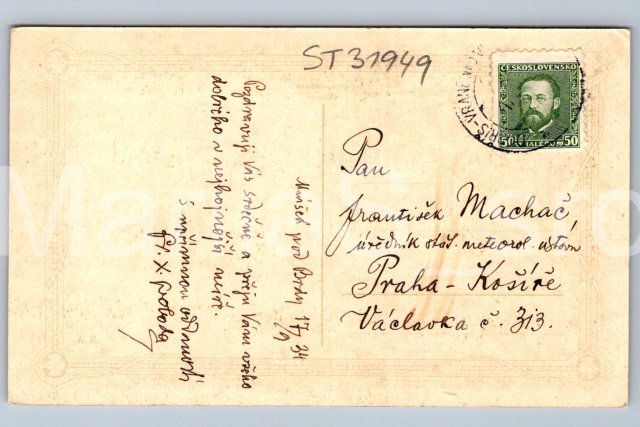 ST 31949
ČESKOSLOVENSKO
50 50
Pan
František Machač,
úředník stát. meteorol. ústavu
Praha-Košíře
Václavka č. 313.
Mníšek pod Brdy 17/9 34
Pozdravuji Vás srdečně a přeji Vám všeho
dobrého v nejhojnější míře.
S upřímnou
Fr. X.
A.K.